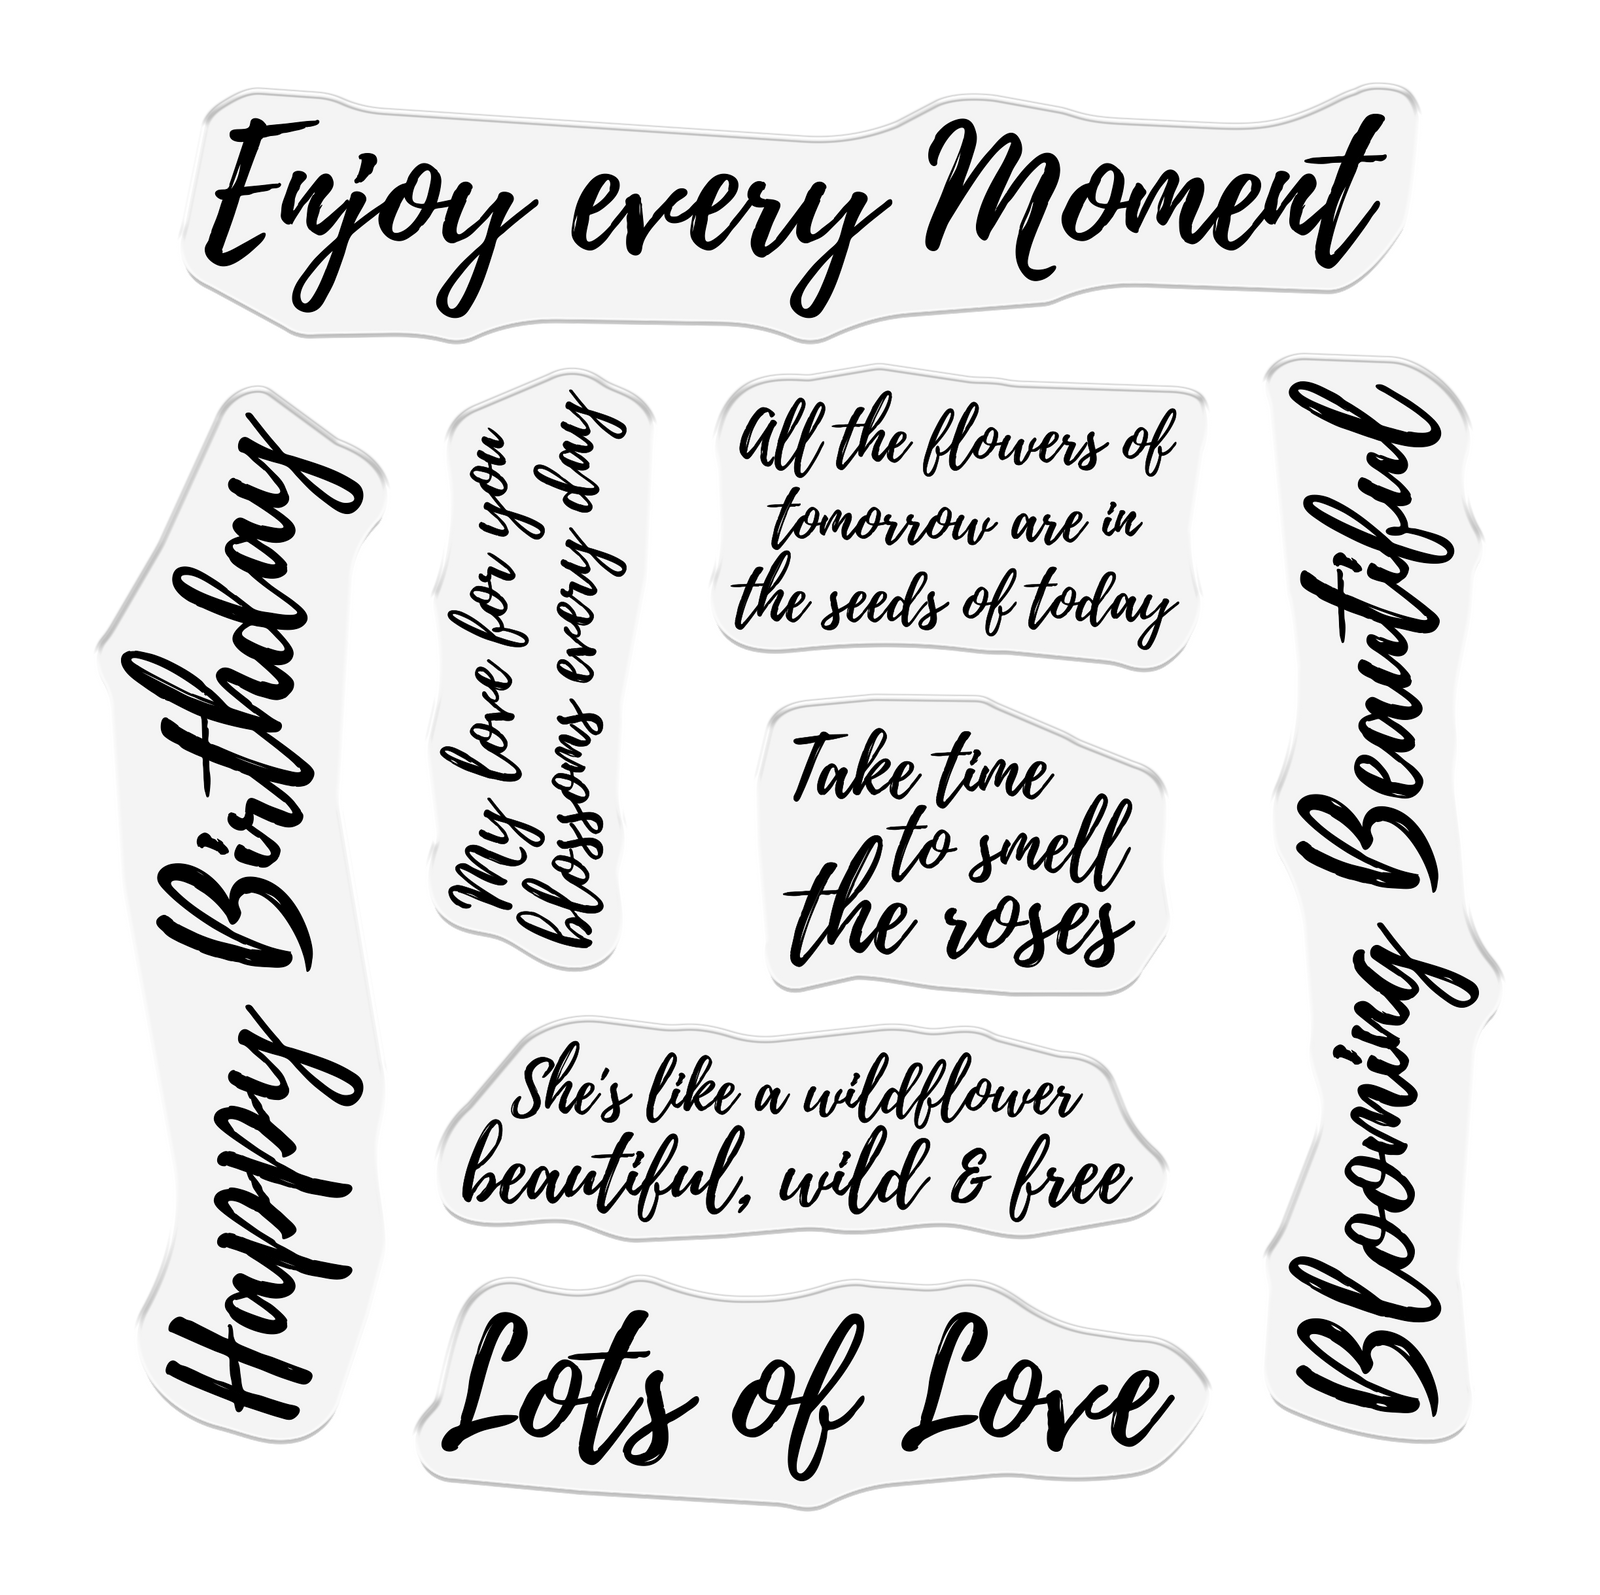 Enjoy every Moment
Happy Birthday
My love for you
blossoms every day
All the flowers of
tomorrow are in
the seeds of today
Take time
to smell
the roses
Blooming Beautiful
She's like a wildflower
beautiful, wild & free
Lots of Love